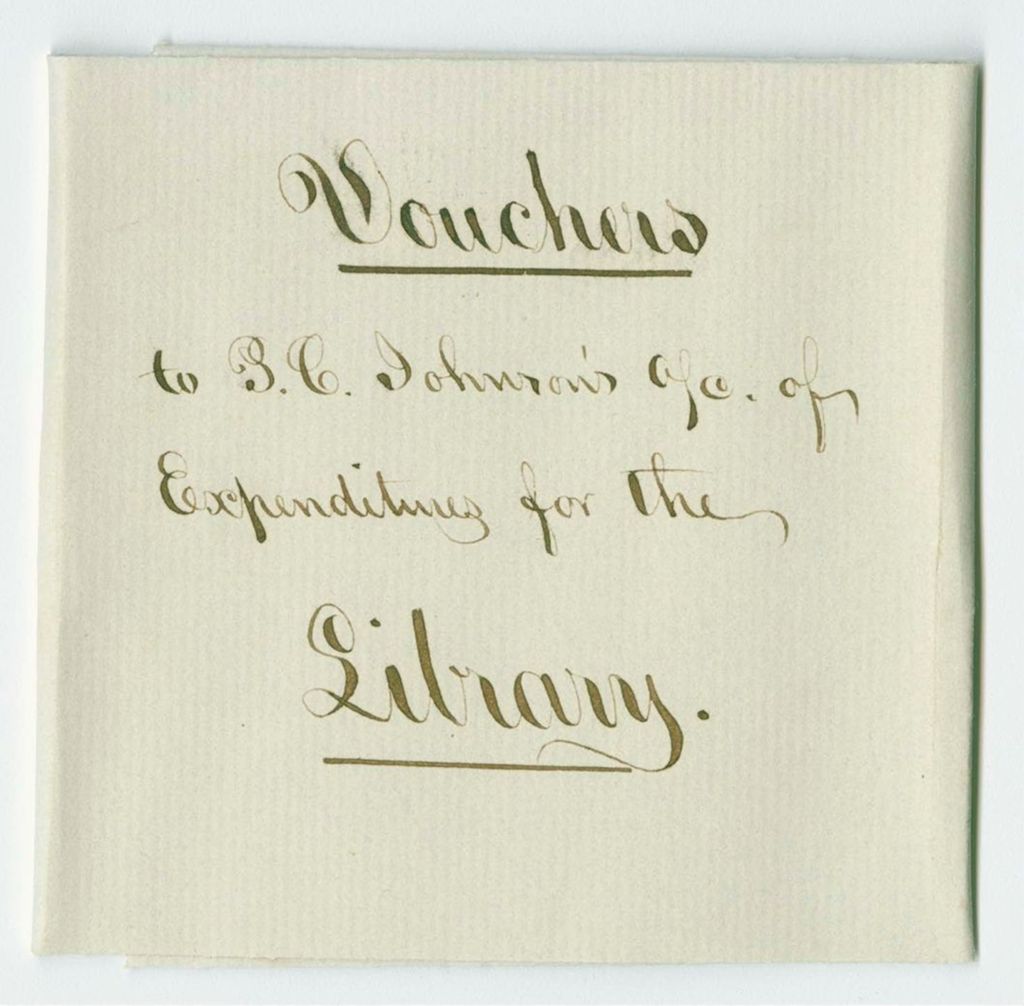 Vouchers
to B. C. Johnson's a/c. of
Expenditures for the
Library.